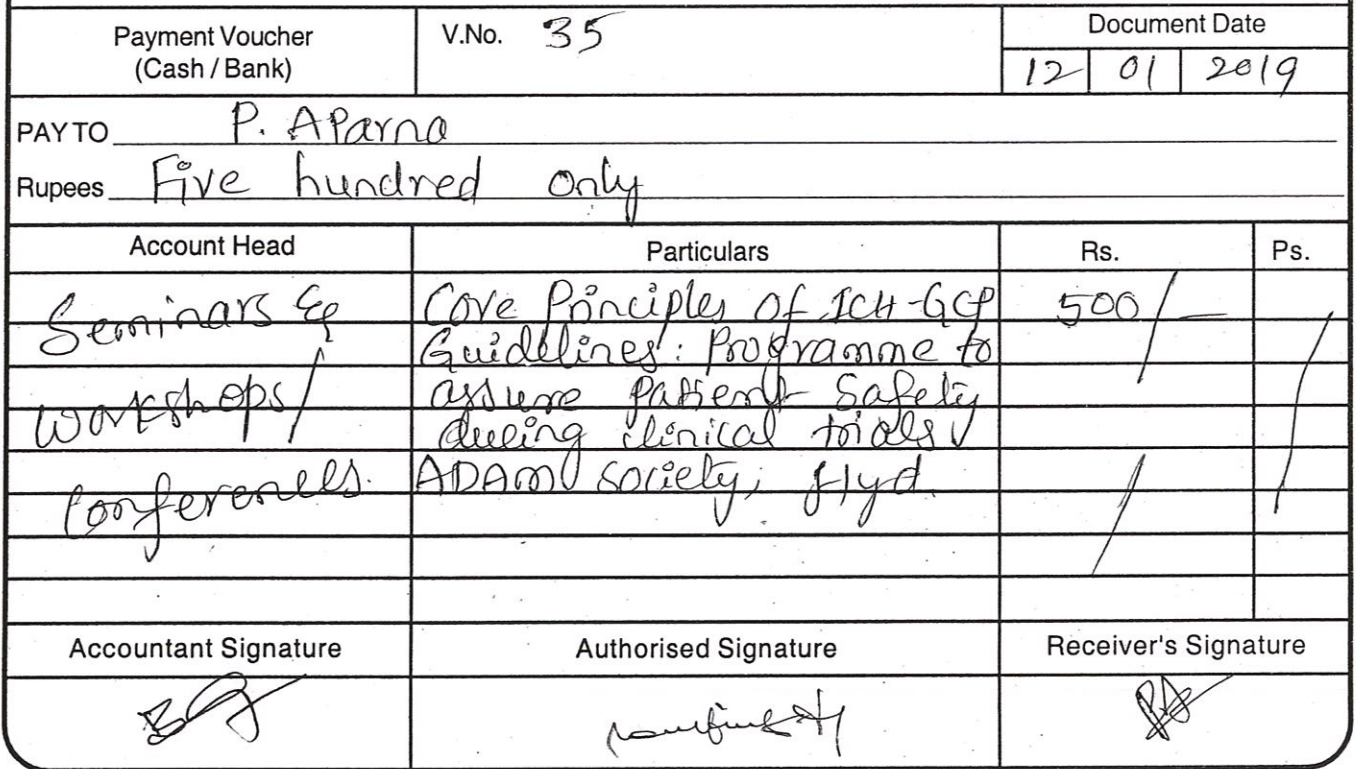 Payment Voucher
(Cash / Bank)
V.No. 35
Document Date
12 01 2019
PAY TO P. Aparna
Rupees Five hundred only
Account Head Particulars Rs. Ps.
Seminars &
workshops/
conferences.
Core Principles of ICH-GCP
Guidelines: Programme to
assure Patient Safety
during clinical trials
ADAM Society, Hyd.
500/-
Accountant Signature Authorised Signature Receiver's Signature